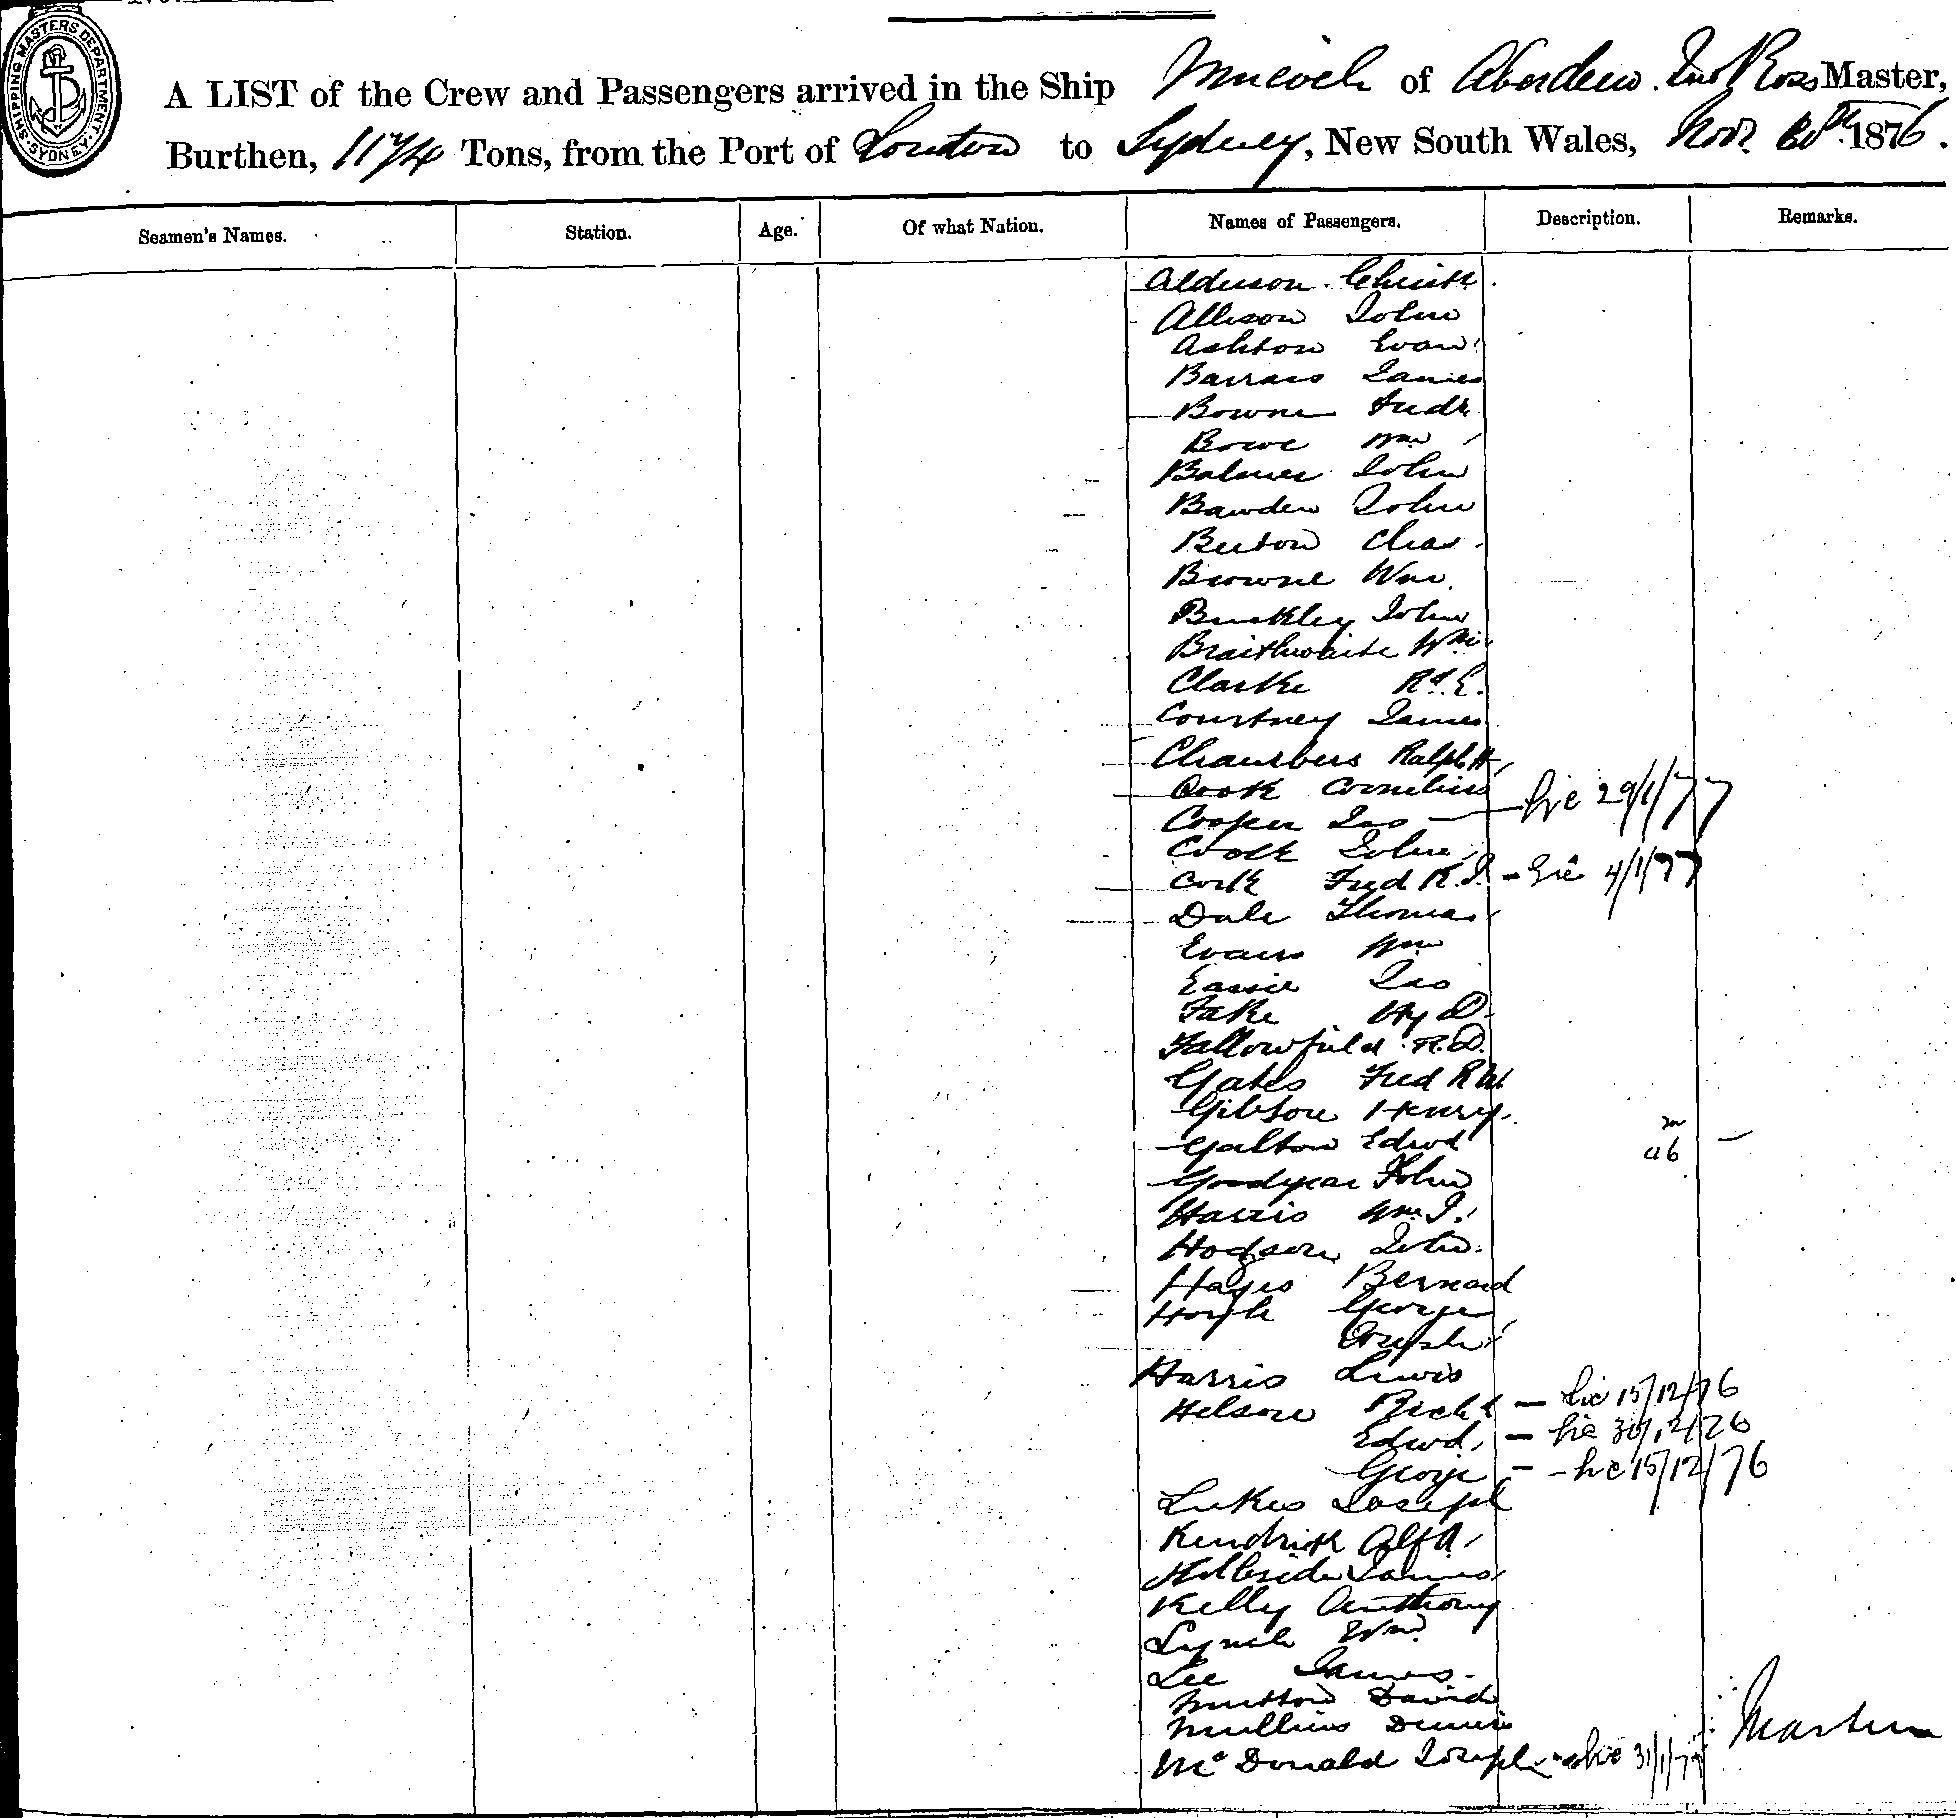 SHIPPING MASTERS DEPARTMENT. SYDNEY
A LIST of the Crew and Passengers arrived in the Ship of Aberdeen. Jno Ross Master,
Burthen, 1174 Tons, from the Port of London to Sydney, New South Wales, Novr. 1876.
Seamen's Names. Station. Age. Of what Nation. Names of Passengers. Description. Remarks.
Alderson
Allison John
Ashton Evan
Barrass James
Bowne Fredk
Bowe Wm
Balmer John
Bawden John
Burton Chas.
Browne Wm.
John
Braithwaite Wm
Clarke Rd. E.
Courtney James
Chambers Ralph H
Cook Cornelius
Cooper Jas — 29/1/77
Cook John
Cork Fred K. J. - 4/1/77
Dale Thomas
Evans Wm
Easie Jas
Fake Hy D.
Fallowfield R. D.
Gates Fred K W
Gibson Henry
Galton Edwd
Goodyear John
Harris Wm J.
Hodgson John
Hayes Bernard
George
Harris Lewis
Helsone Richd — 15/12/76
Edwd. —
George — 15/12/76
Lukes Joseph
Kendrick Alf A.
James
Kelly Anthony
Lynch Wm
Lee James.
Mutton David
Mullins
McDonald Joseph 31/1/77